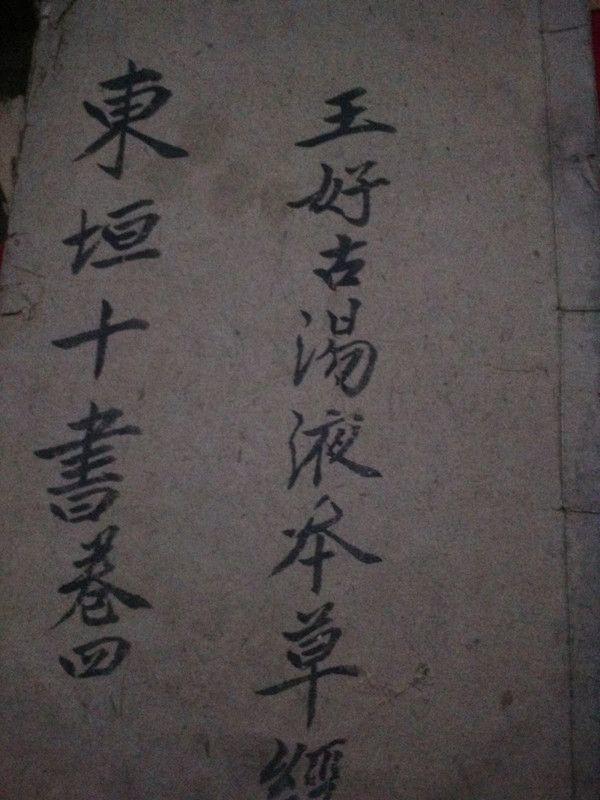 王好古湯液本草經
東垣十書卷四